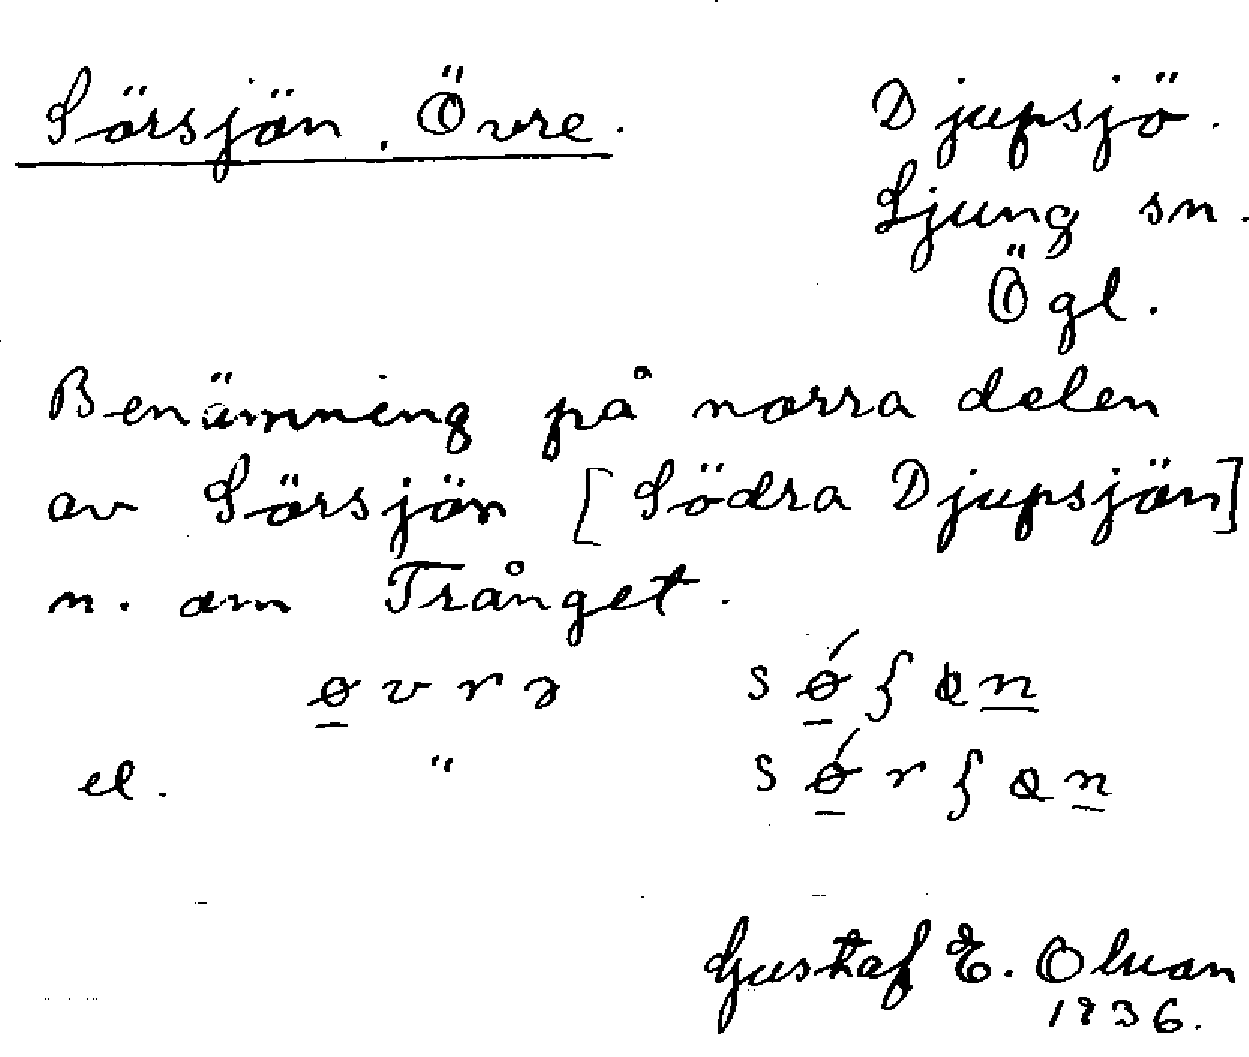 Sörsjön, Övre.
Djupsjö.
Ljung sn.
Ögl.
Benämning på norra delen
av Sörsjön [Södra Djupsjön]
n. om Trånget.
el. "
Gustaf E.
1936.